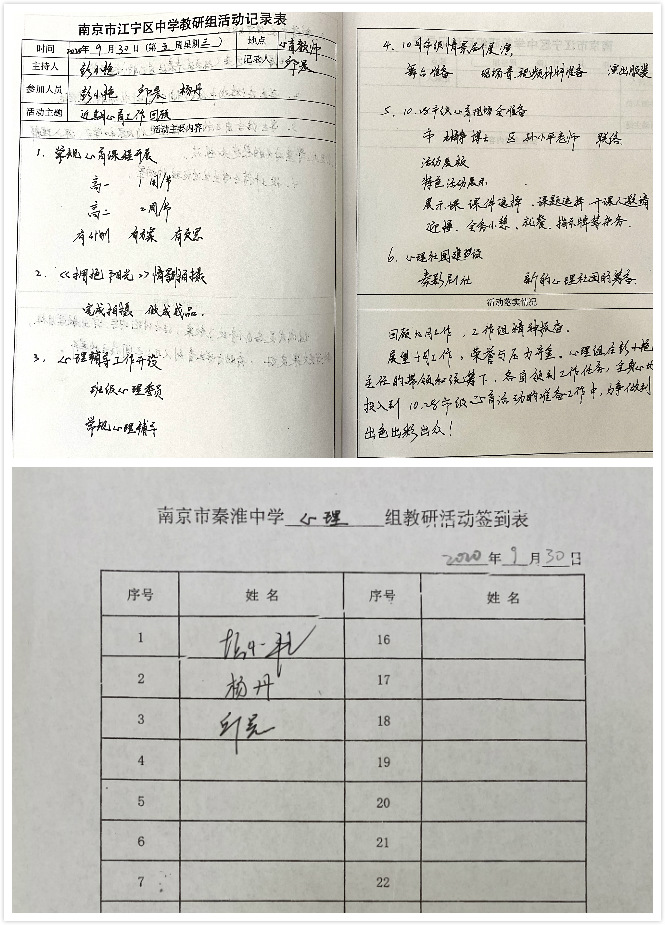 南京市江宁区中学教研组活动记录表
时间 2020年9月30日(第五周星期三) 地点 心育教师
主持人 彭小艳 记录人
参加人员 彭小艳 杨丹
活动主题 近期心育工作回顾
活动主要内容
1、常规心育课程开展
高一 1周/节
高二 2周/节
有计划 有方案 有反思
2、《拥抱阳光》情景剧拍摄
完成拍摄 做成成品.
3、心理辅导工作开设
班级心理委员
常规心理辅导
4、10月市级情景剧展演
舞台准备 视频 准备 演出服装
5、10.28市级心育现场会准备
市 博士 区 孙小平老师 联络
活动展板
特色活动展示
展示课 课件选择、课题选择、开课人邀请
迎候、会务小憩、就餐、指示牌等杂务.
6、心理社团建设
秦影剧社 新的心理社团的筹备
活动落实情况
回顾九月工作,工作组精神振奋.
展望十月工作,荣誉与压力并重.心理组在彭小艳
主任的带领和统筹下,各自领到工作任务,全身心地
投入到10.28市级心育活动的准备工作中,力争做到
出色出彩出众!
南京市秦淮中学 心理 组教研活动签到表
2020年9月30日
序号 姓名 序号 姓名
1 彭小艳 16
2 杨丹 17
3 18
4 19
5 20
6 21
7 22